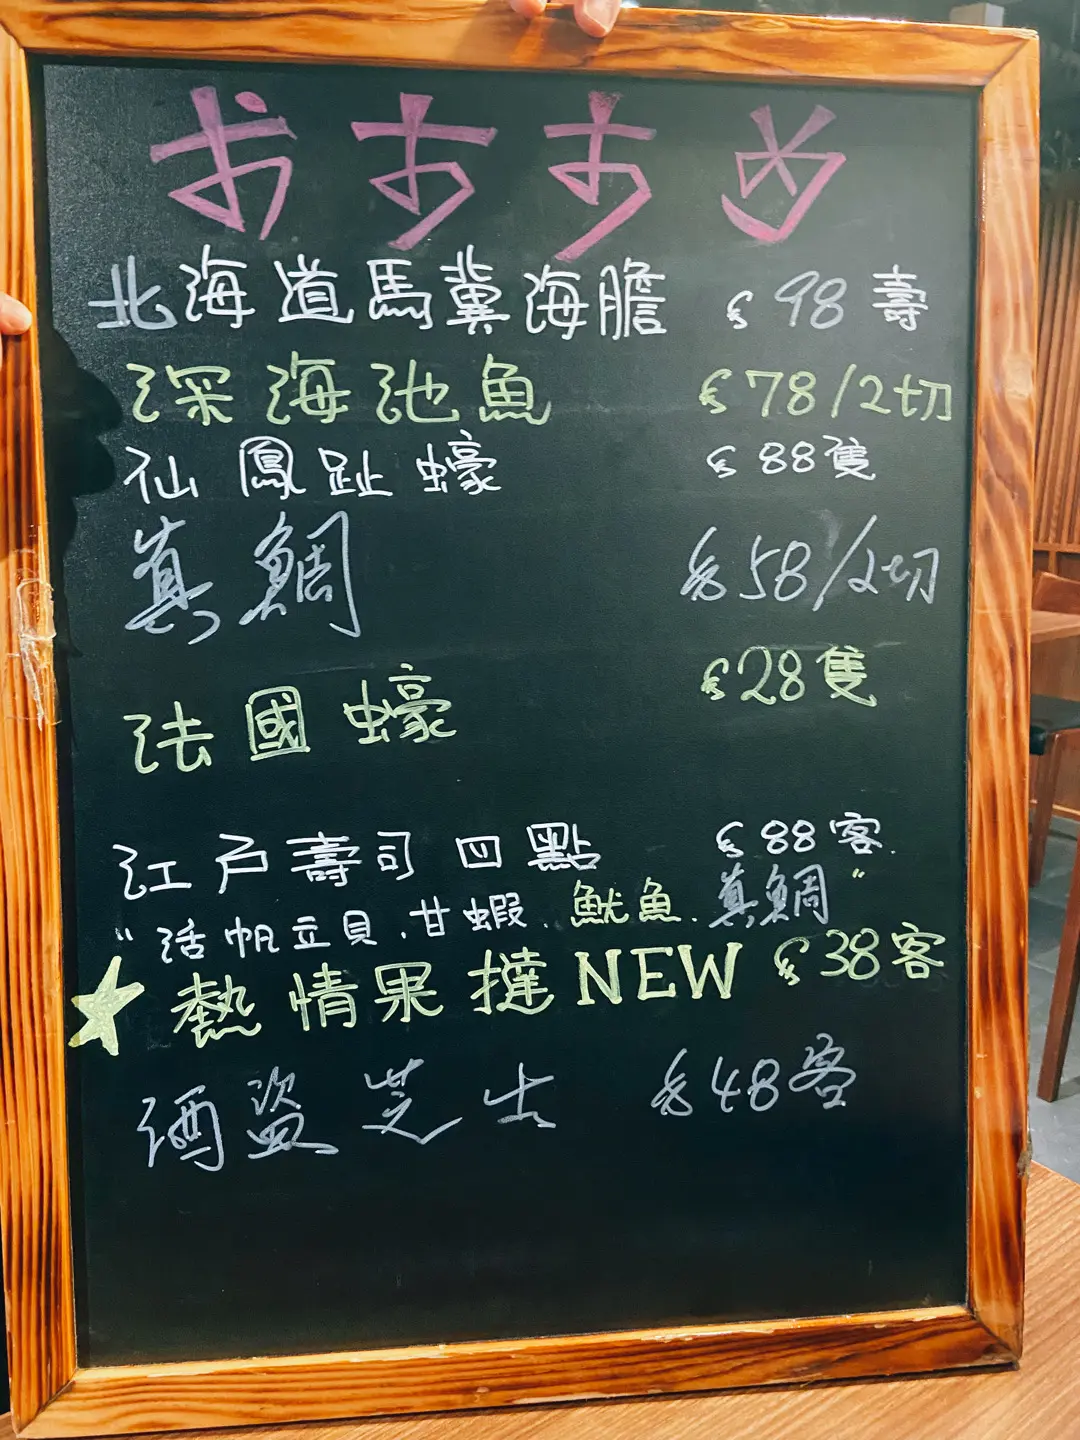 おすすめ
北海道馬糞海膽 $98壽
深海池魚 $78/2切
仙鳳趾蠔 $88隻
真鯛 $58/2切
法國蠔 $28隻
江戸壽司四點 $88客.
"活帆立貝.甘蝦.魷魚.真鯛"
★熱情果撻NEW $38客
酒盗芝士 $48客